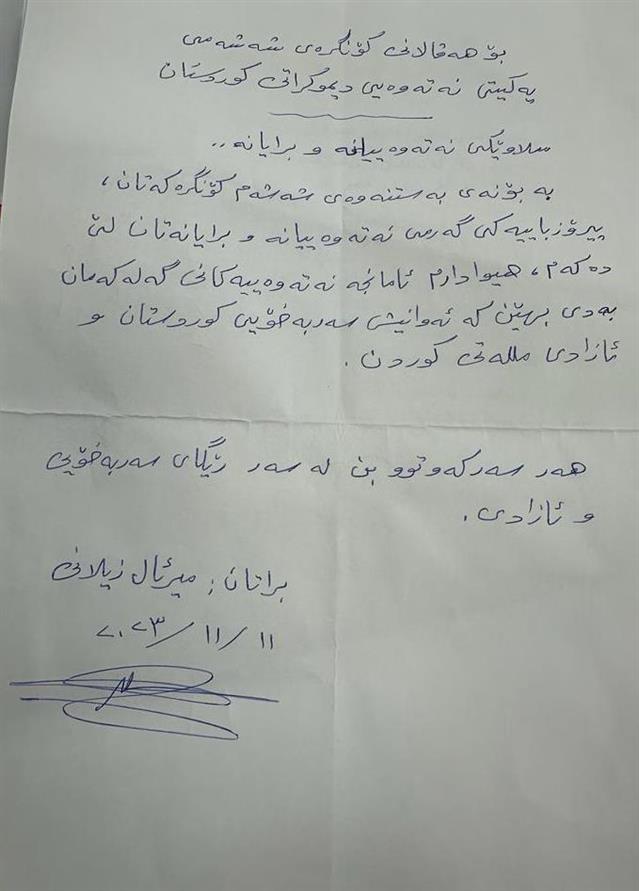 بۆ هەڤالانی کۆنگرەی شەشەمی
یەکیتی نەتەوەیی دیموکراتی کوردستان
سلاوێکی نەتەوەییانە و برایانە..
بە بۆنەی بەستنەوەی شەشەم کۆنگرەکەتان،
پیرۆزباییەکی گەرمی نەتەوەییانە و برایانەتان لێ
دەکەم، هیوادارم ئامانجە نەتەوەییەکانی گەلەکەمان
بەدی بهێنن کە ئەوانیش سەربەخۆیی کوردستان و
ئازادی مللەتی کوردن.
هەر سەرکەوتوو بن لە سەر ڕێگای سەربەخۆیی
و ئازادی.
براتان: میرئال زیلانی
٢٠٢٣/١١/١١